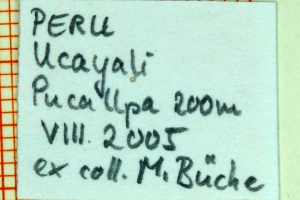 PERU
Ucayali
Pucallpa 200m
VIII. 2005
ex coll. M. Büche